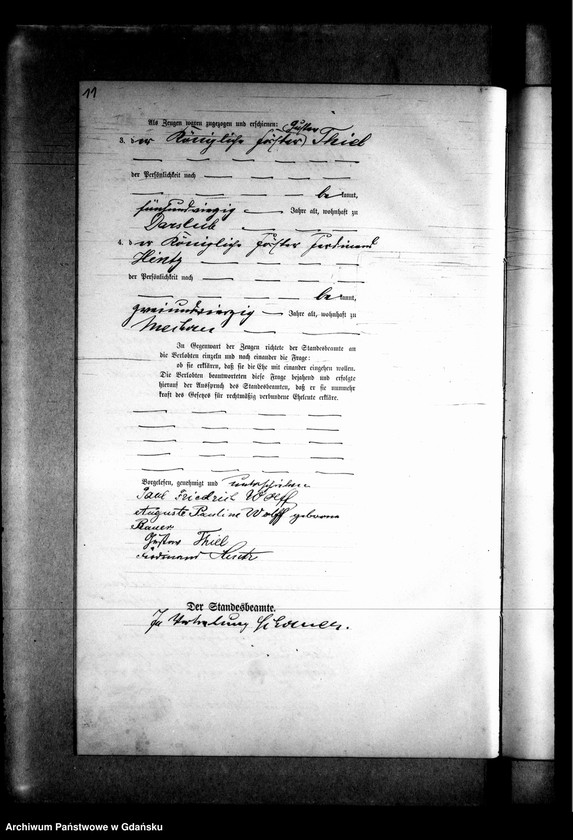 11
Als Zeugen waren zugezogen und erschienen:
Gustav
3. der Königliche Förster Thiel
der Persönlichkeit nach
bekannt,
fünfundvierzig Jahre alt, wohnhaft zu
Darslub
4. der Königliche Förster Ferdinand
Hintz
der Persönlichkeit nach
bekannt,
zweiundvierzig Jahre alt, wohnhaft zu
In Gegenwart der Zeugen richtete der Standesbeamte an
die Verlobten einzeln und nach einander die Frage:
ob sie erklären, daß sie die Ehe mit einander eingehen wollen.
Die Verlobten beantworteten diese Frage bejahend und erfolgte
hierauf der Ausspruch des Standesbeamten, daß er sie nunmehr
kraft des Gesetzes für rechtmäßig verbundene Eheleute erkläre.
Vorgelesen, genehmigt und unterschrieben
Paul Friedrich Wolff
Auguste Pauline Wolff geborene
Gustav Thiel
Ferdinand Hintz
Der Standesbeamte.
In Vertretung
Archiwum Państwowe w Gdańsku